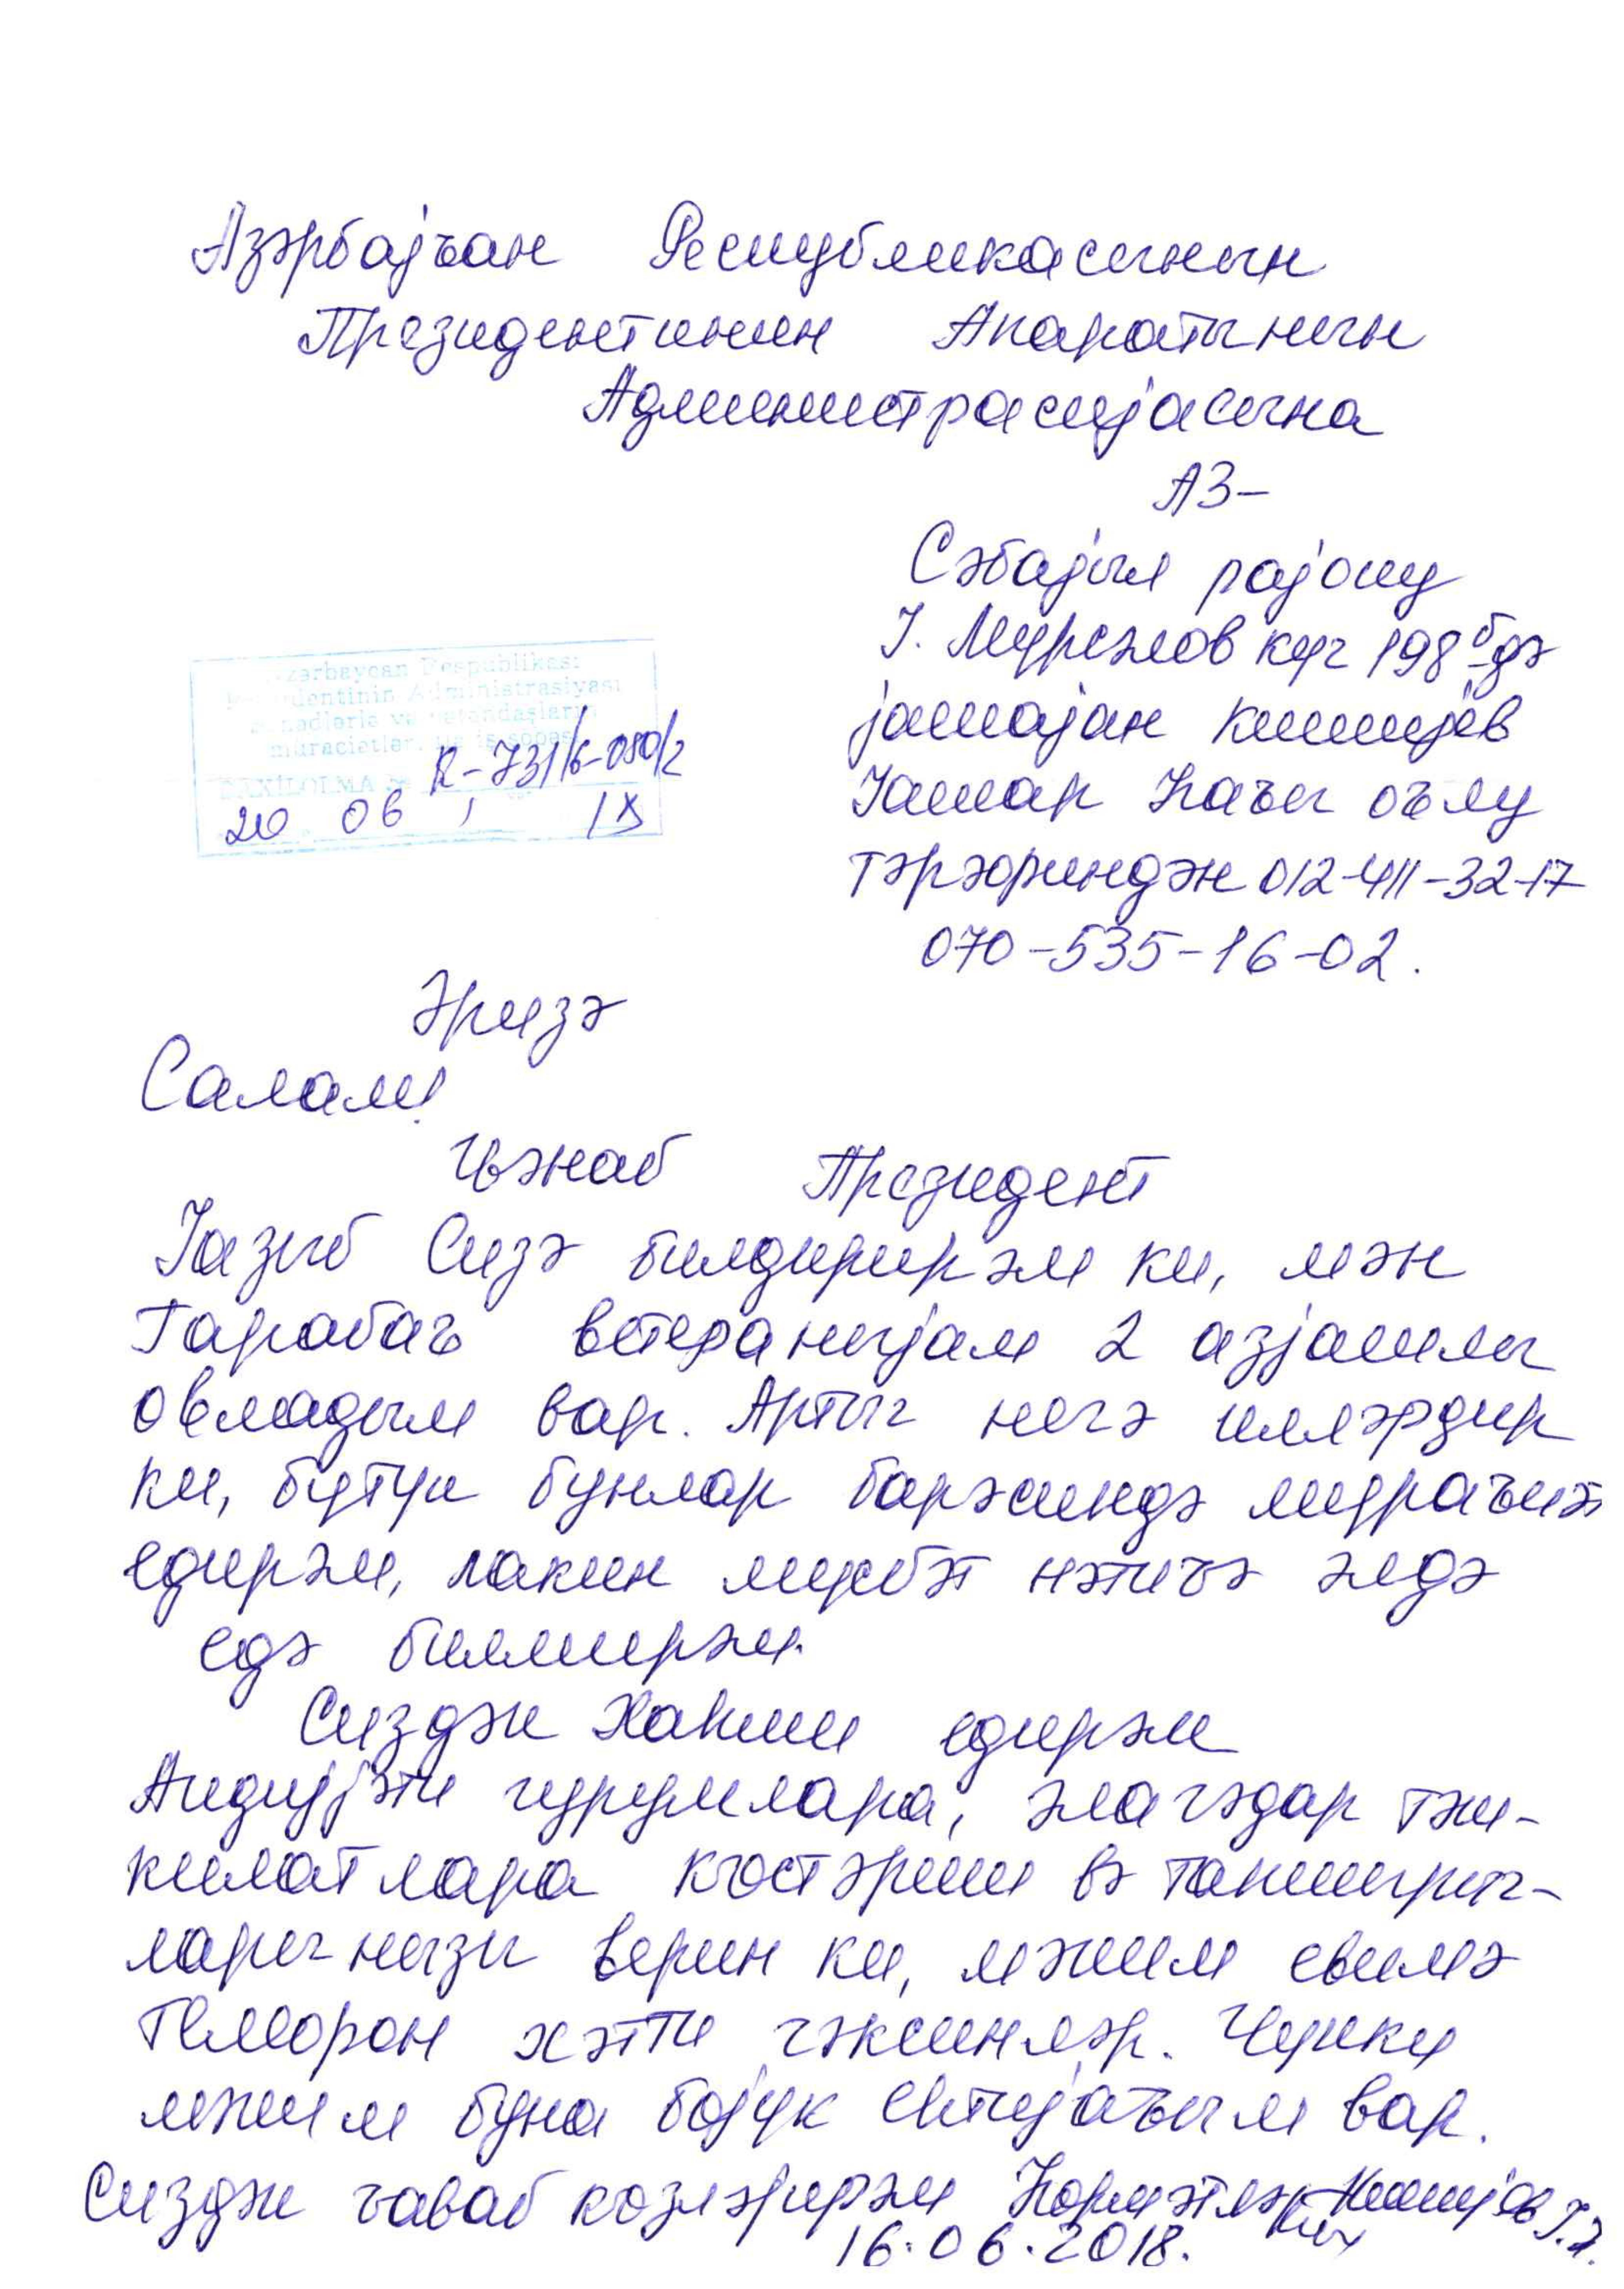 Азәрбајҹан Республикасынын
Президентинин Апаратынын
Администрасијасына
АЗ-
Сәбајыл рајону
Ј. Мурсәлов күч 198 б-дә
јашајан
Јашар Һаҹы оғлу
тәрәфиндән 012-411-32-17
070-535-16-02.
Azərbaycan Respublikası
Prezidentinin Administrasiyası
R-731/6-080/2
20 06 / IX
Әризә
Салам!
Ҹәнаб Президент
Јазыб Сизә билдирирәм ки, мән
Гарабағ ветеранијам 2 азјашлы
овладым вар. Артыг нечә илләрдир
ки, бүтүн бунлар барәсиндә мүраҹиәт
едирәм, лакин мүсбәт нәтиҹә әлдә
едә билмирәм.
Сиздән Хаһиш едирәм
Аидијјәти гурумлара, әлагәдар тәш-
килатлара көстәриш вә тапшырыг-
ларынызы верин ки, мәним евимә
Телефон хәтти чәксинләр. Чүнки
мәним буна бөјүк еһтијаҹым вар.
Сиздән ҹаваб көзләјирәм Һөрмәтлә:
16.06.2018.